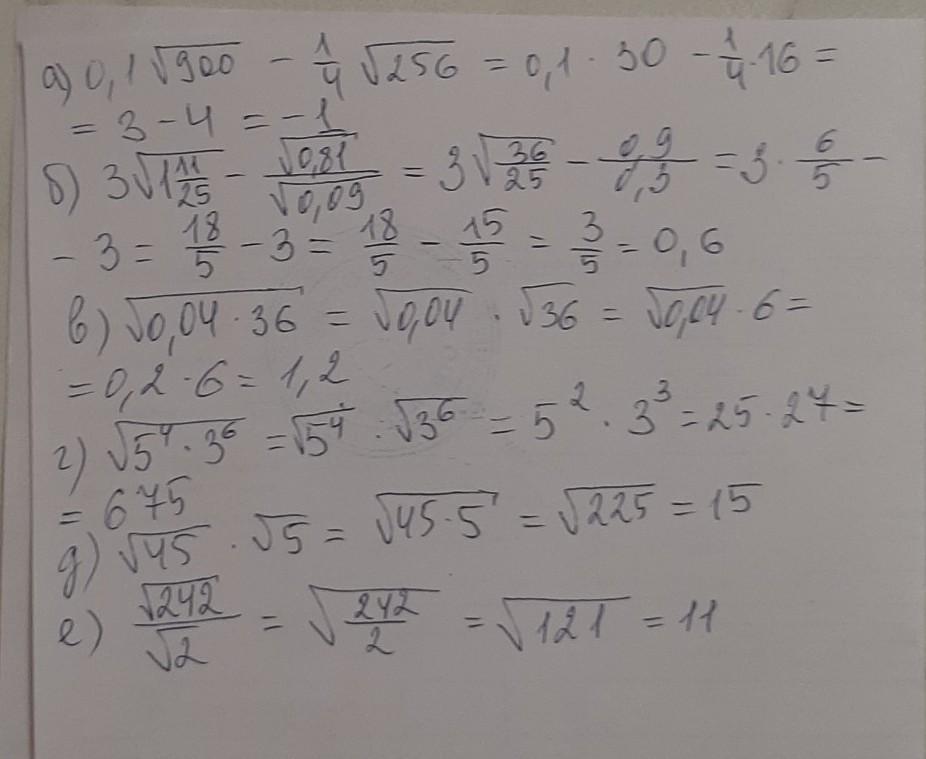 а) 0,1√900 - 1/4 √256 = 0,1 · 30 - 1/4 · 16 =
= 3 - 4 = -1
б) 3√1 11/25 - √0,81/√0,09 = 3√36/25 - 0,9/0,3 = 3 · 6/5 -
- 3 = 18/5 - 3 = 18/5 - 15/5 = 3/5 = 0,6
в) √0,04 · 36 = √0,04 · √36 = √0,04 · 6 =
= 0,2 · 6 = 1,2
г) √5⁴ · 3⁶ = √5⁴ · √3⁶ = 5² · 3³ = 25 · 27 =
= 675
д) √45 · √5 = √45 · 5 = √225 = 15
е) √242/√2 = √242/2 = √121 = 11